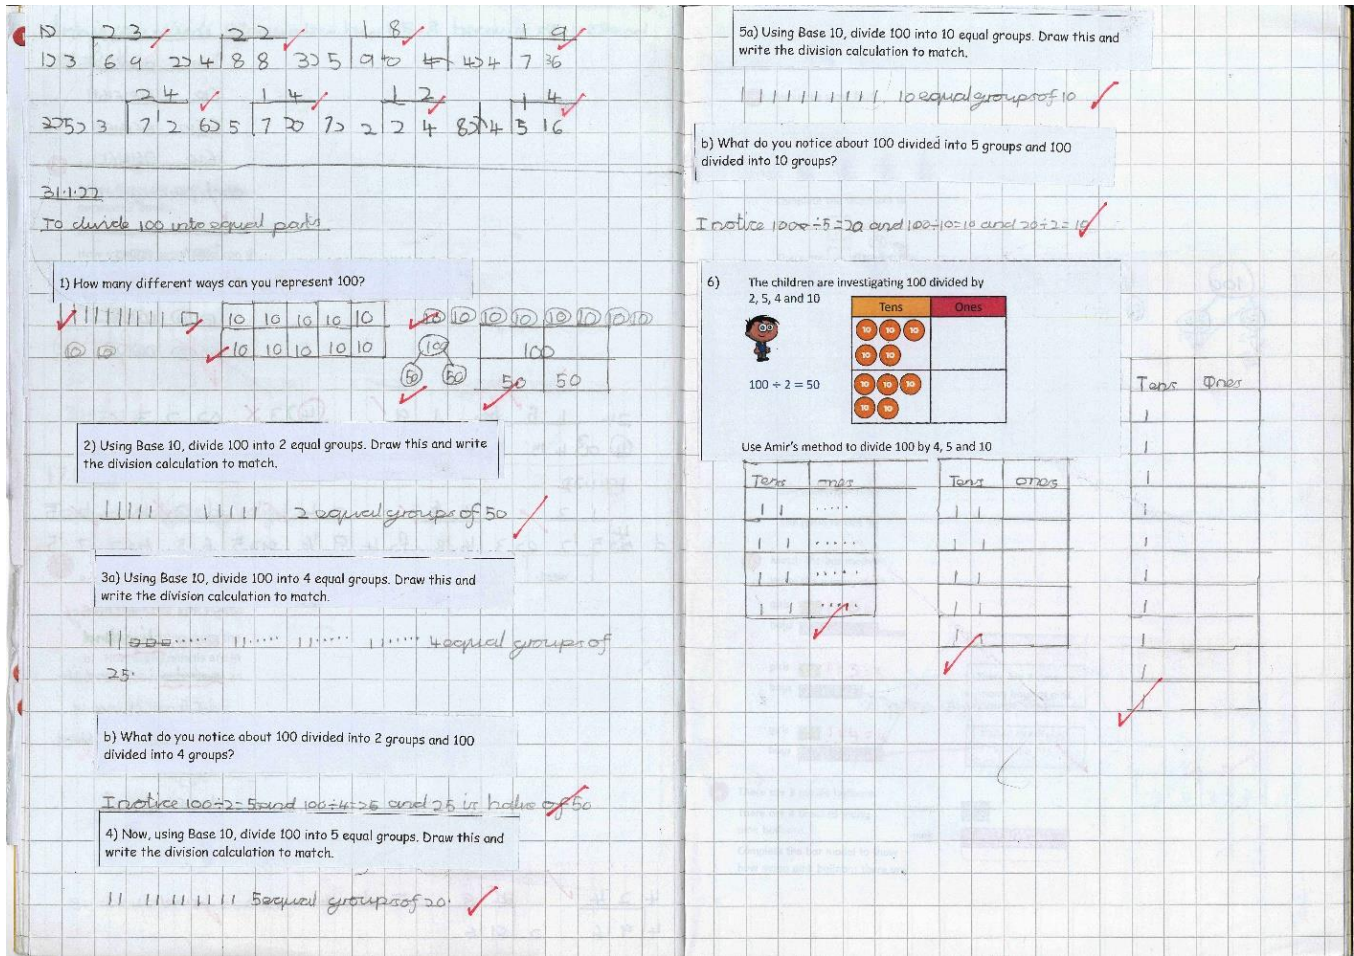 23 22 18 19
1) 3 69 2) 4 88 3) 5 940 4) 4 736
24 14 12 14
5) 3 712 6) 5 720 7) 2 24 8) 4 516
31.1.22
To divide 100 into equal parts
1) How many different ways can you represent 100?
10 10 10 10 10 10 10 10 10 10 10 10 10
10 10 10 10 10 10 10 100 100
50 50 50 50
2) Using Base 10, divide 100 into 2 equal groups. Draw this and write
the division calculation to match.
2 equal groups of 50
3a) Using Base 10, divide 100 into 4 equal groups. Draw this and
write the division calculation to match.
4 equal groups of
25.
b) What do you notice about 100 divided into 2 groups and 100
divided into 4 groups?
I notice 100÷2=5 and 100÷4=25 and 25 is halve of 50
4) Now, using Base 10, divide 100 into 5 equal groups. Draw this and
write the division calculation to match.
5 equal groups of 20.
5a) Using Base 10, divide 100 into 10 equal groups. Draw this and
write the division calculation to match.
10 equal groups of 10
b) What do you notice about 100 divided into 5 groups and 100
divided into 10 groups?
I notice 100÷5=20 and 100÷10=10 and 20÷2=10
6) The children are investigating 100 divided by
2, 5, 4 and 10
Tens Ones
10 10 10
10 10
100 ÷ 2 = 50
10 10 10
10 10
Use Amir's method to divide 100 by 4, 5 and 10
Tens ones
Tens ones
Tens Ones